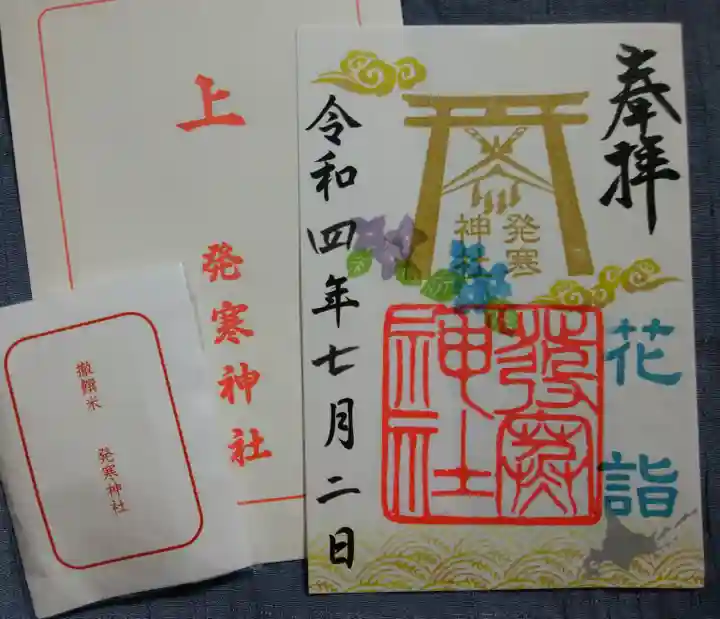 奉拝
発寒
神社
花詣
発寒
神社
令和四年七月二日
上
発寒神社
撤饌米
発寒神社